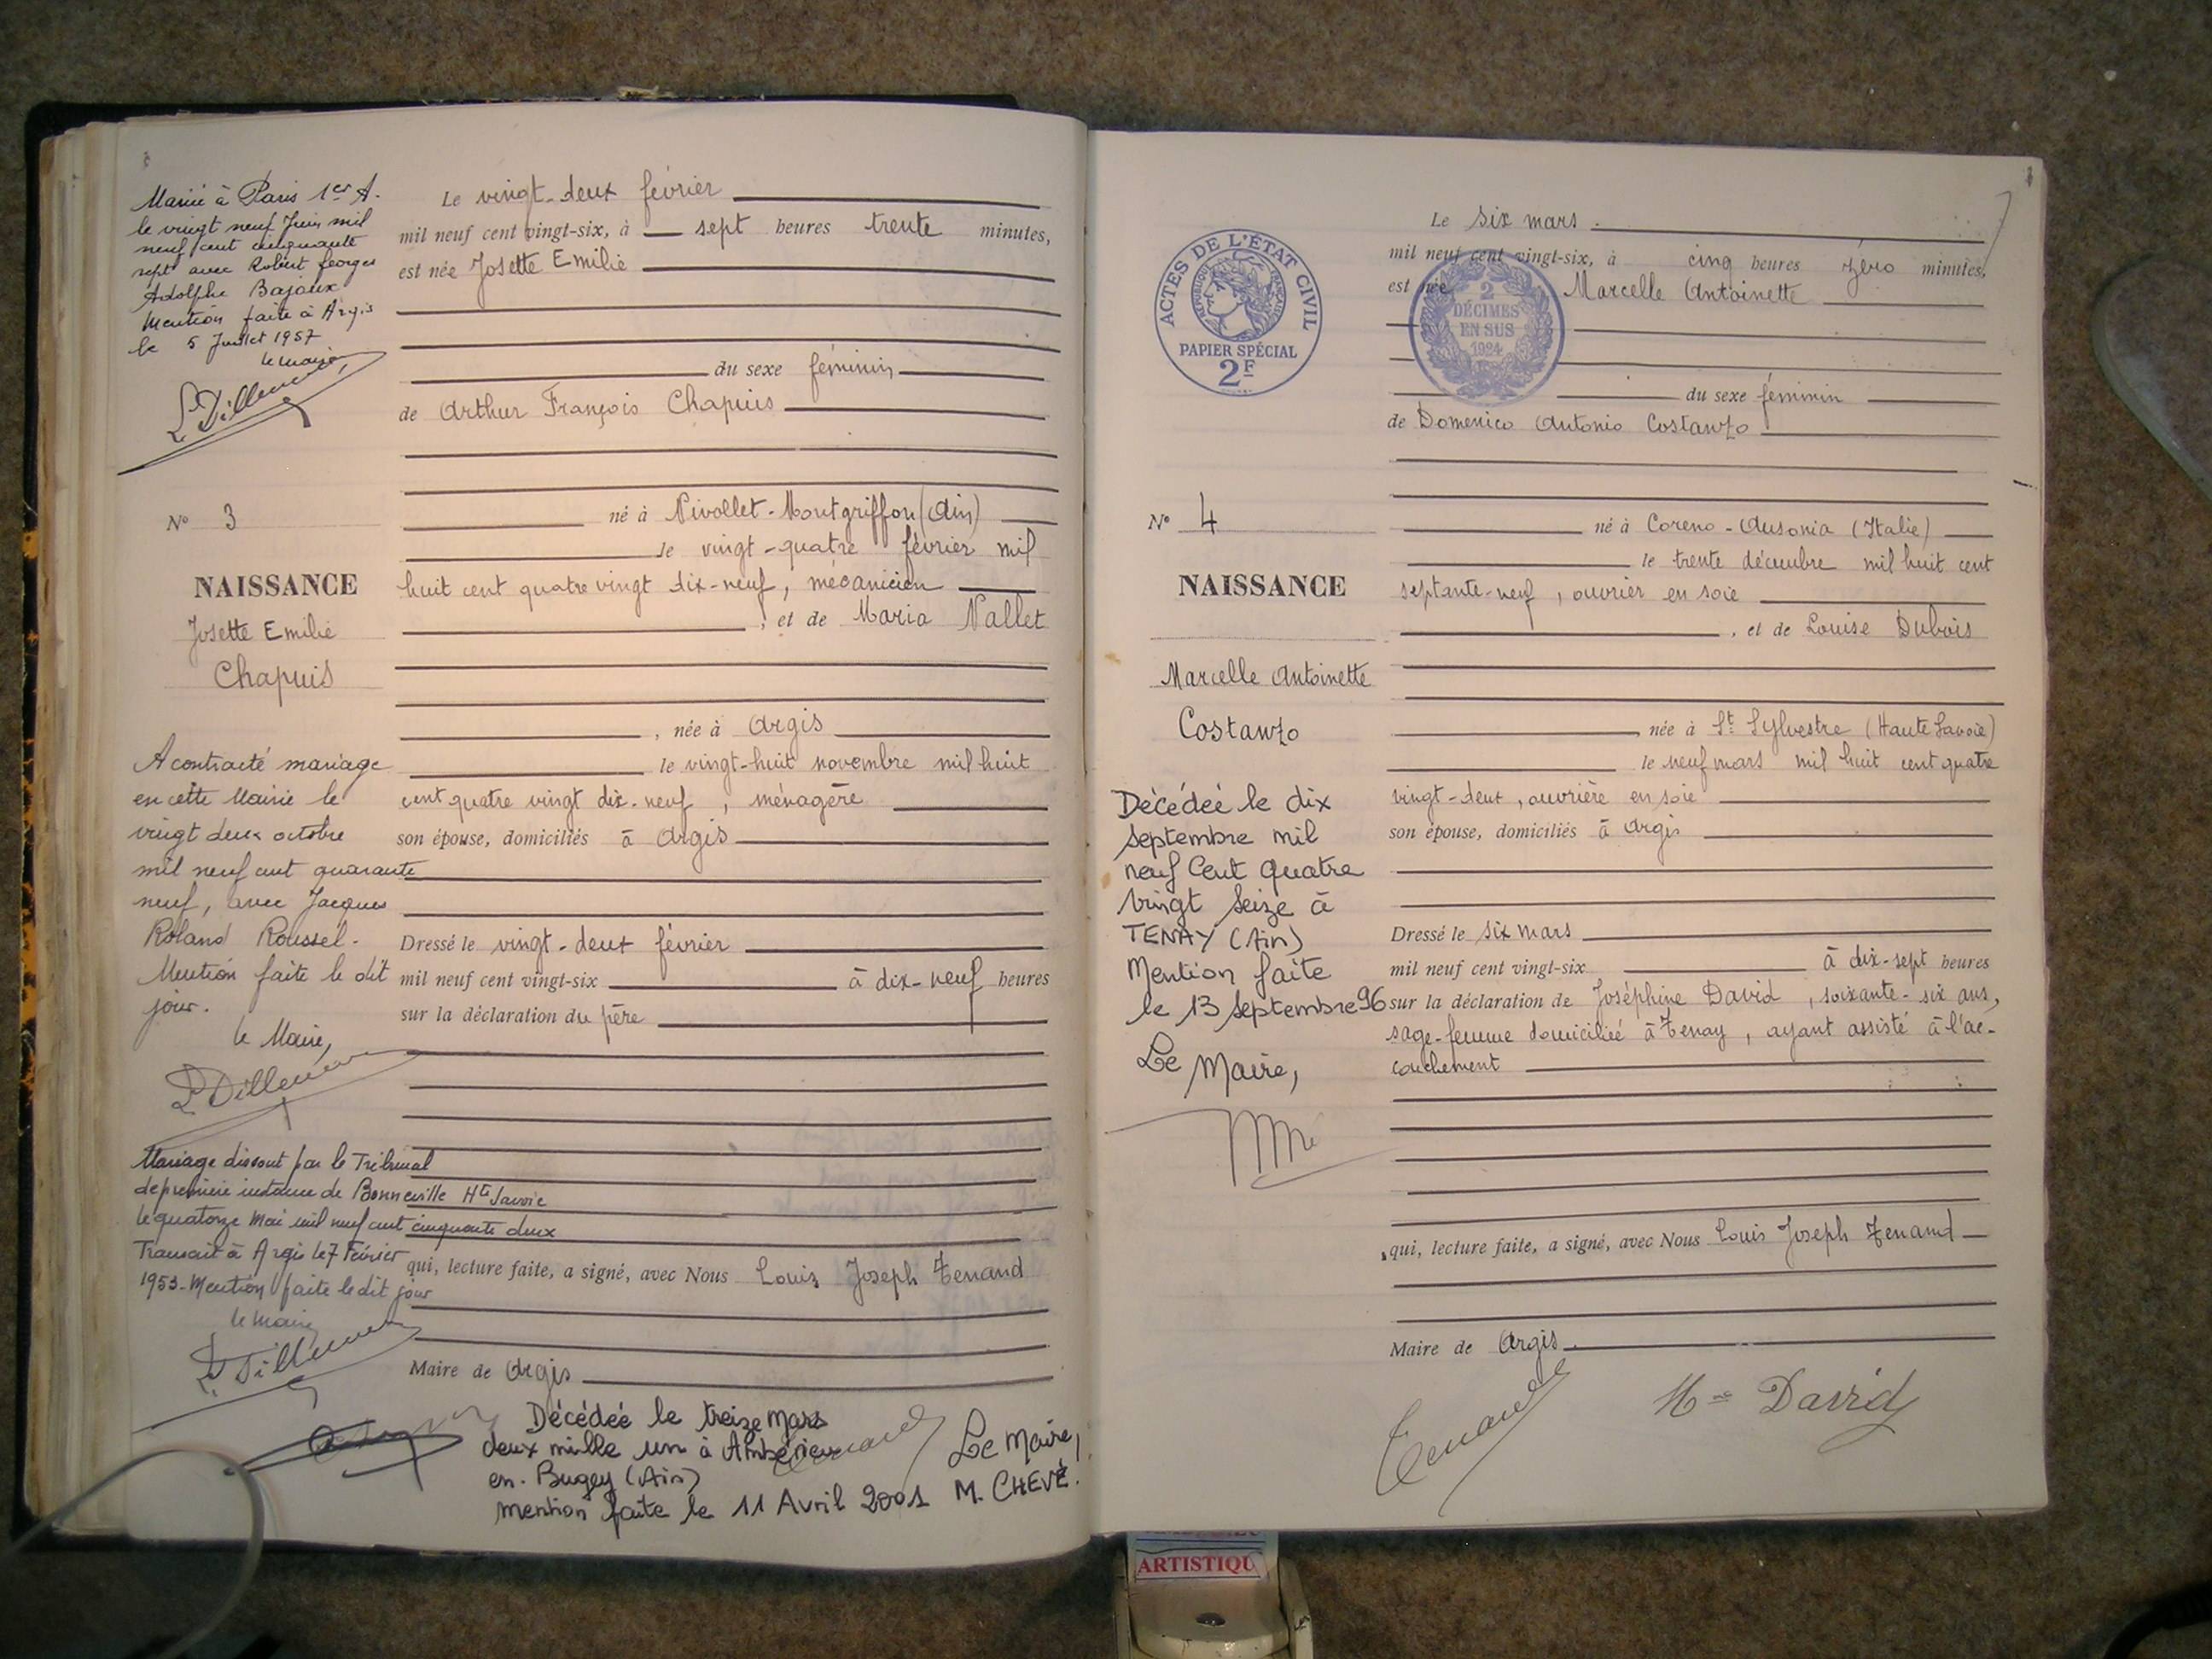 Mariée à Paris 1er A.
le vingt neuf Juin mil
neuf cent cinquante
sept avec Robert Georges
Adolphe Bajaux
Mention faite à Argis
le 5 Juillet 1957
le maire
Le vingt-deux février
mil neuf cent vingt-six, à sept heures trente minutes,
est née Josette Emilie
du sexe féminin
de Arthur François Chapuis
né à Nivollet-Montgriffon (Ain)
le vingt-quatre février mil
huit cent quatre vingt dix-neuf, mécanicien
, et de Maria Nallet
, née à Argis
le vingt-huit novembre mil huit
cent quatre vingt dix-neuf, ménagère
son épouse, domiciliés à Argis
Dressé le vingt-deux février
mil neuf cent vingt-six à dix-neuf heures
sur la déclaration du père
qui, lecture faite, a signé, avec Nous Louis Joseph Tenand
Maire de Argis
No 3
NAISSANCE
Josette Emilie
Chapuis
A contracté mariage
en cette Mairie le
vingt deux octobre
mil neuf cent quarante
neuf, avec Jacques
Roland Roussel.
Mention faite le dit
jour.
le Maire,
Mariage dissout par le Tribunal
de première instance de Bonneville Hte Savoie
le quatorze Mai mil neuf cent cinquante deux
Transcrit à Argis le 7 Février
1953 - Mention faite le dit jour
le maire
Décédée le treize mars
deux mille un à Ambérieu
en-Bugey (Ain)
mention faite le 11 Avril 2001
Le Maire,
M. CHEVÉ.
ACTES DE L'ÉTAT CIVIL
RÉPUBLIQUE FRANÇAISE
PAPIER SPÉCIAL
2F
2
DÉCIMES
EN SUS
1924
Le six mars.
mil neuf cent vingt-six, à cinq heures zéro minutes,
est née Marcelle Antoinette
du sexe féminin
de Domenico Antonio Costanzo
né à Coreno-Ausonia (Italie)
le trente décembre mil huit cent
septante-neuf, ouvrier en soie
, et de Louise Dubois
, née à St Sylvestre (Haute Savoie)
le neuf mars mil huit cent quatre
vingt-deux, ouvrière en soie
son épouse, domiciliés à Argis
Dressé le six mars
mil neuf cent vingt-six à dix-sept heures
sur la déclaration de Joséphine David, soixante-six ans,
sage-femme domiciliée à Tenay, ayant assisté à l'ac-
couchement
qui, lecture faite, a signé, avec Nous Louis Joseph Tenand
Maire de Argis.
Tenand
Me David
No 4
NAISSANCE
Marcelle Antoinette
Costanzo
Décédée le dix
septembre mil
neuf Cent Quatre
vingt Seize à
TENAY (Ain)
Mention faite
le 13 Septembre 96
Le Maire,
ARTISTIQU